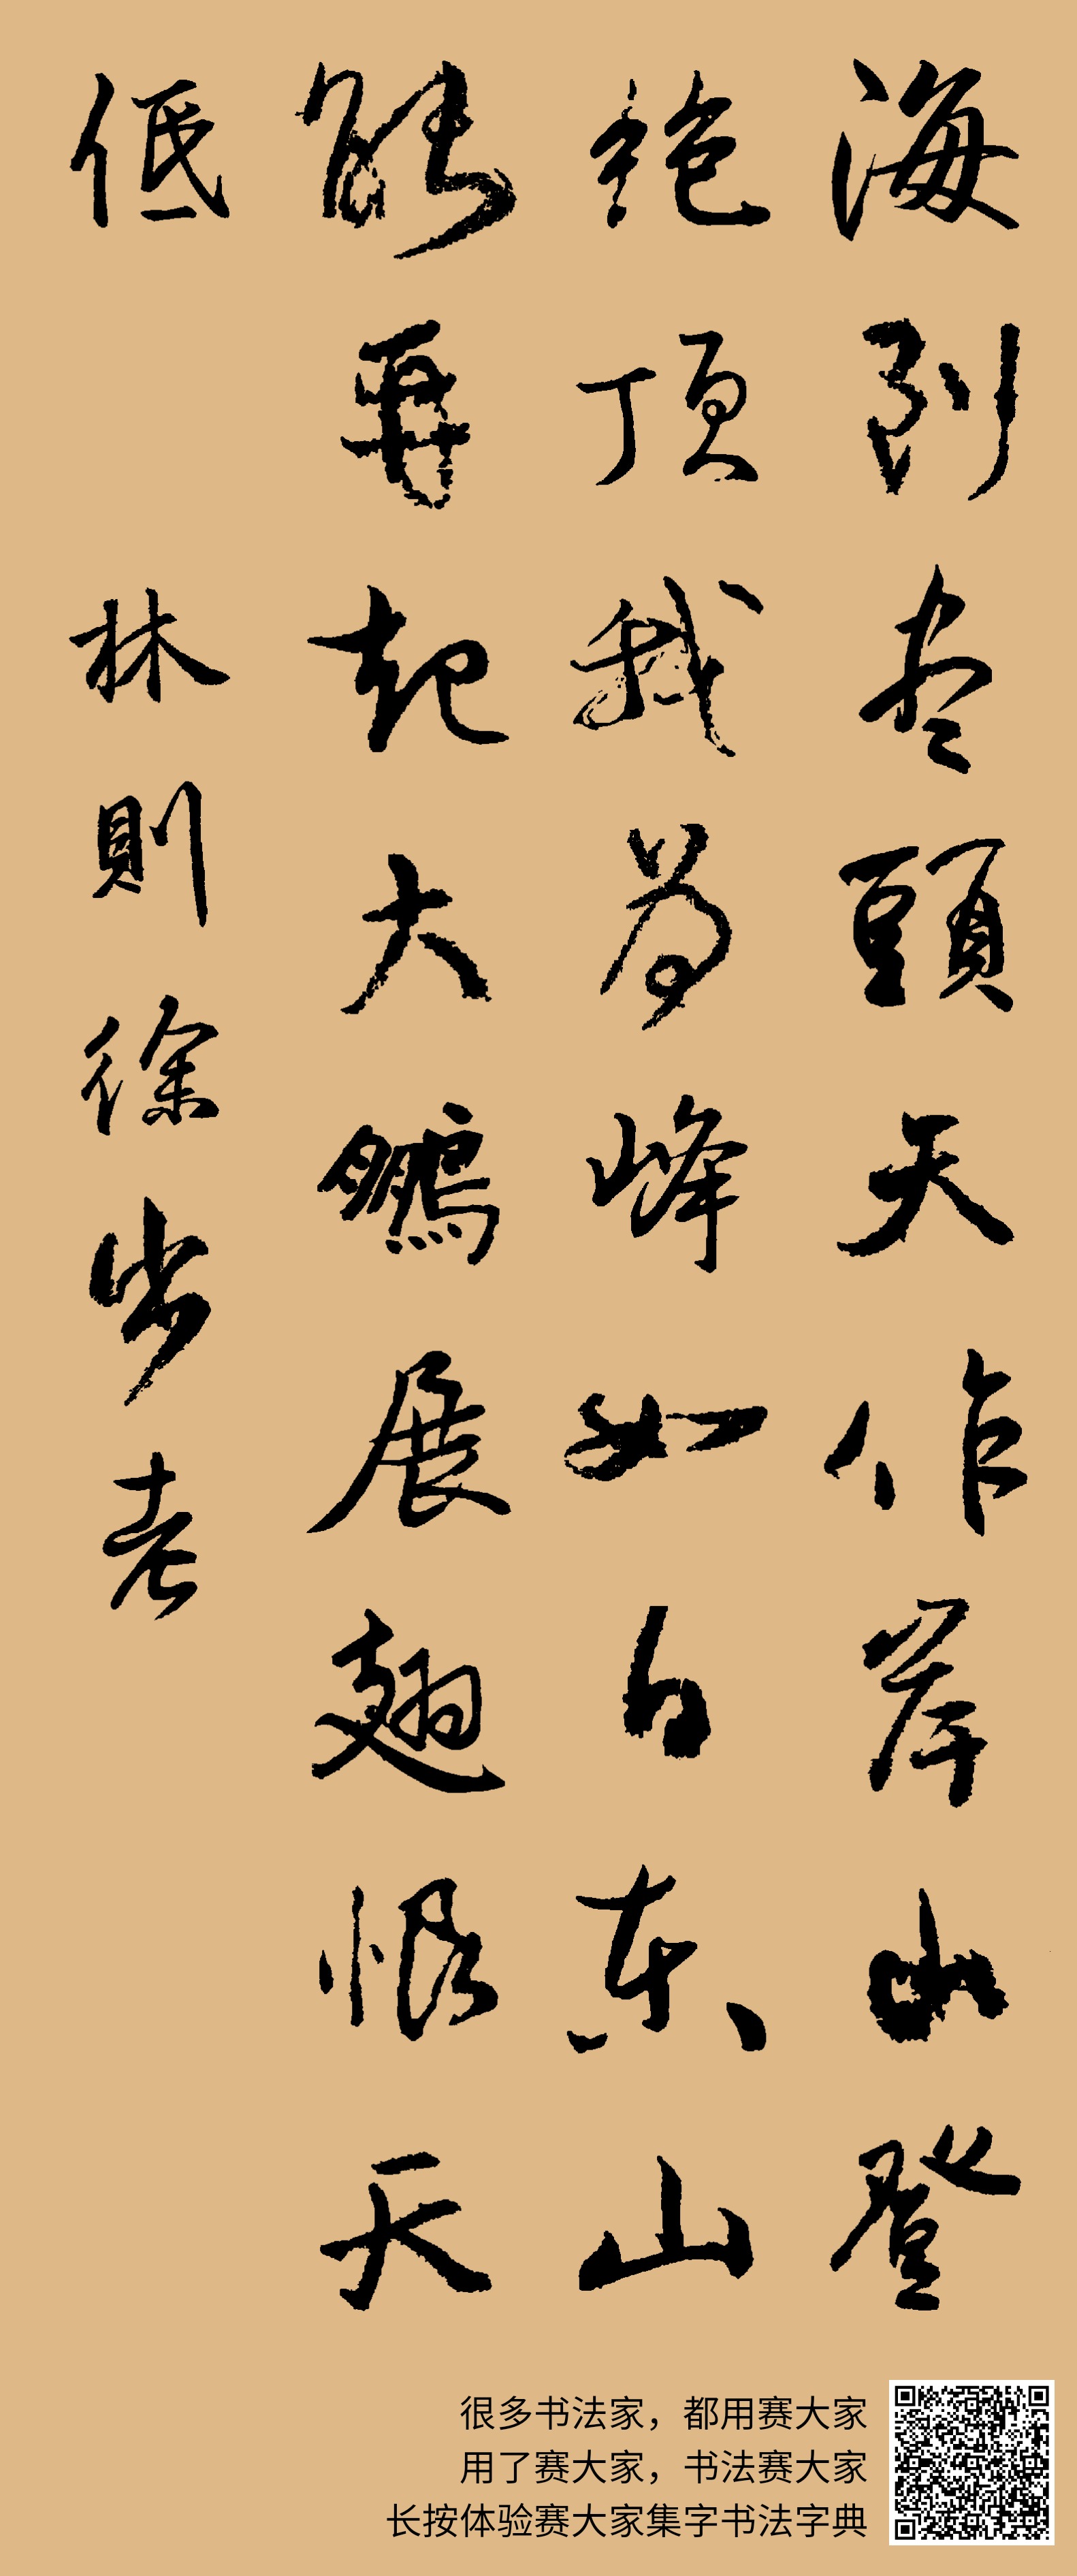 海到尽頭天作岸山登
絶頂我為峰如日東山
能再起大鵬展翅恨天
低 林則徐出老
很多书法家，都用赛大家
用了赛大家，书法赛大家
长按体验赛大家集字书法字典